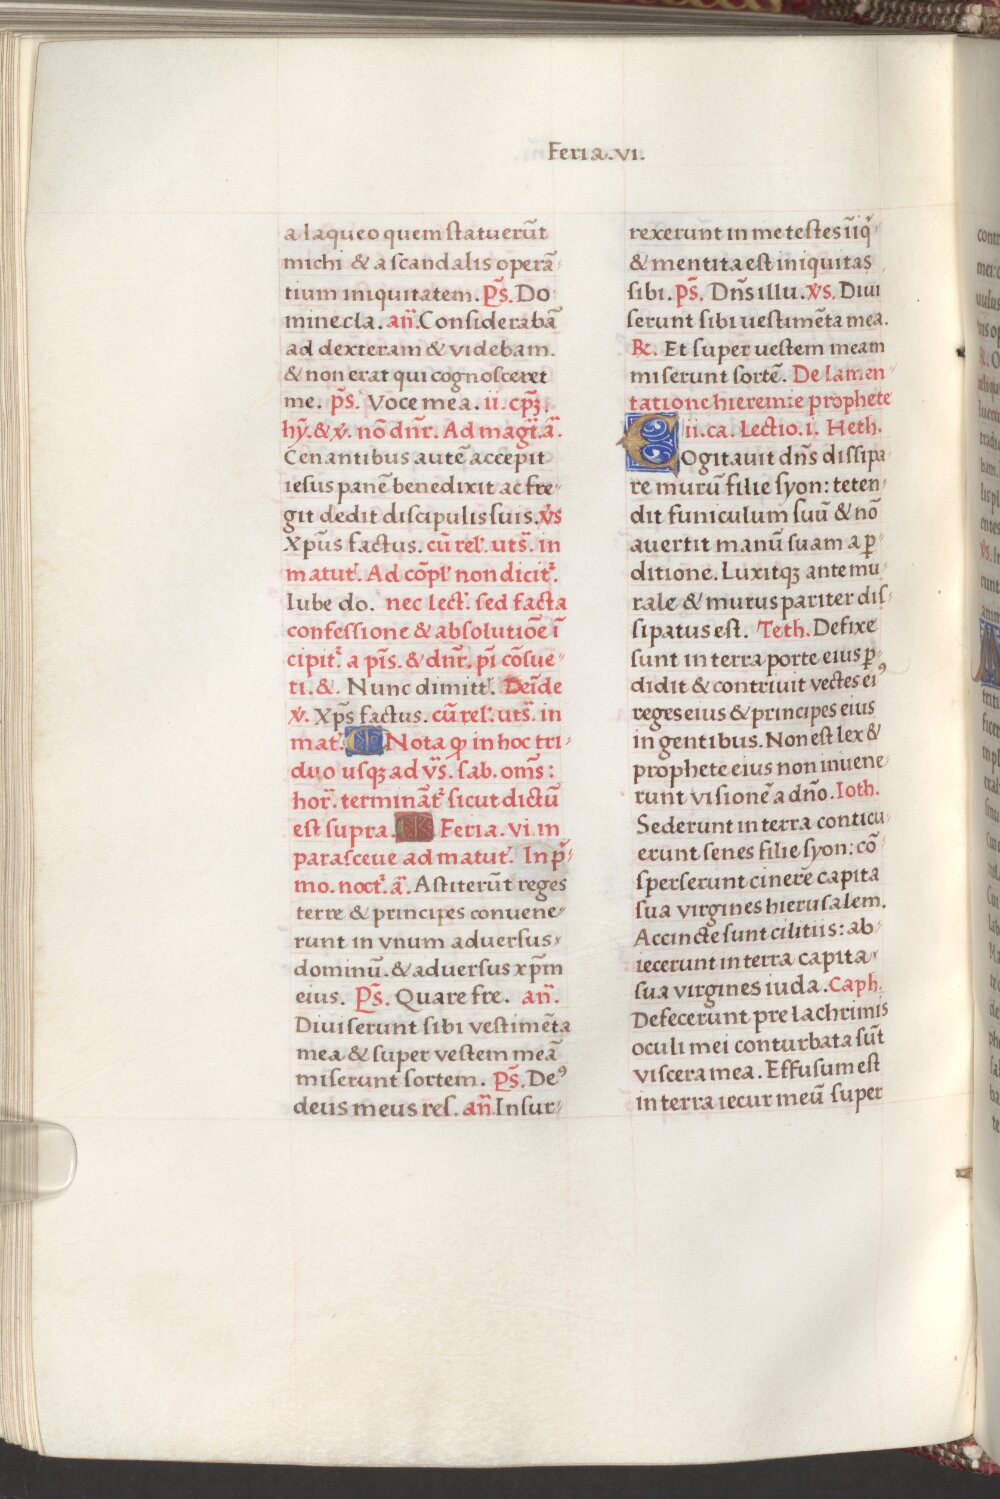 Feria.vi.
a laqueo quem statuerūt
michi & a scandalis operā
tium iniquitatem. P̄s. Do
mine cla. an̄. Considerabā
ad dexteram & videbam.
& non erat qui cognosceret
me. p̄s. Voce mea. ii. cp̄ꝫ.
hȳ. & v̄. nō dn̄r. Ad magī. ā.
Cenantibus autē accepit
iesus panē benedixit ac fre
git dedit discipulis suis. v̄s
Xp̄us factus. cū rel'. uts̄. in
matut'. Ad cōpl' non dicit'.
Iube do. nec lect'. sed facta
confessione & absolutiōe ī
cipit'. a pīs. & dn̄r. pī cōsue
ti. &. Nunc dimitt'. Deīde
v̄. Xp̄s factus. cū rel'. uts̄. in
mat'. Nota ꝙ in hoc tri
duo usqꝫ ad v̄s. sab. om̄s:
hor̄. termināt' sicut dictū
est supra. Feria. vi. in
parasceue ad matut'. In p'
mo. noct'. ā. Astiterūt reges
terre & principes conuene
runt in vnum aduersus
dominū. & aduersus xp̄m
eius. P̄s. Quare fre. an̄.
Diuiserunt sibi vestimēta
mea & super vestem meā
miserunt sortem. P̄s. Deꝰ
deus meus res. an̄. Insur
rexerunt in me testes īiq'
& mentita est iniquitas
sibi. p̄s. Dn̄s illu. v̄s. Diui
serunt sibi uestimēta mea.
℟. Et super uestem meam
miserunt sortē. De lamen
tatione hieremie prophete
ii.ca. Lectio. i. Heth.
COgitauit dn̄s dissipa
re murū filie syon: teten
dit funiculum suū & nō
auertit manū suam a ꝑ
ditione. Luxitqꝫ ante mu
rale & murus pariter dis
sipatus est. Teth. Defixe
sunt in terra porte eius ꝑ
didit & contriuit vectes eiꝰ
reges eius & principes eius
in gentibus. Non est lex &
prophete eius non inuene
runt visionē a dn̄o. Ioth.
Sederunt in terra conticu
erunt senes filie syon: cō
sperserunt cinere capita
sua virgines hierusalem.
Accincte sunt cilitiis: ab
iecerunt in terra capita
sua virgines iuda. Caph.
Defecerunt pre lachrimis
oculi mei conturbata sūt
viscera mea. Effusum est
in terra iecur meū super